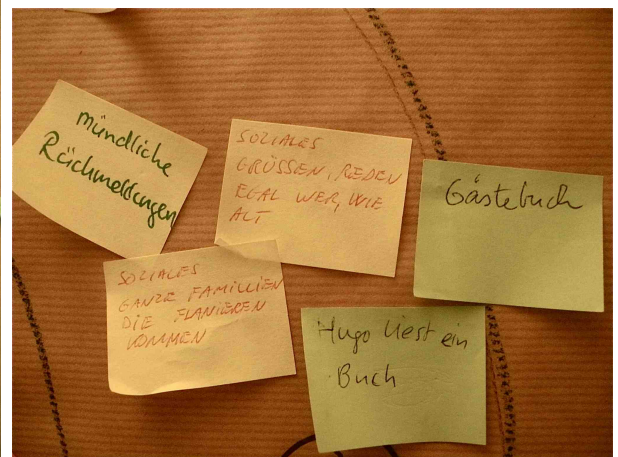 mündliche
Rückmeldungen
SOZIALES
GRÜSSEN, REDEN
EGAL WER, WIE
ALT
Gästebuch
SOZIALES
GANZE FAMILLIEN
DIE FLANIEREN
KOMMEN
Hugo liest ein
Buch